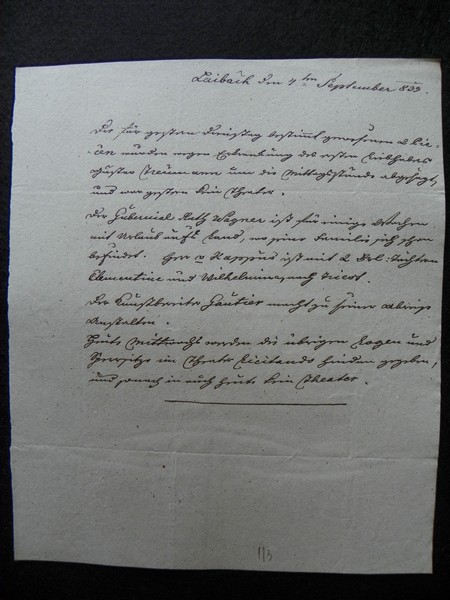 Laibach den 4ten September 839.
Die für gestern Dienstag bestimmt gewesenen 2
wurden wegen Erkrankung des ersten Liebhabers
um die Mittagsstunde abgesagt,
und war gestern kein Theater.
Der Gubernial Rath Wagner ist für einige Wochen
mit Urlaub aufs Land, wo seine Familie sich schon
befindet. Herr v Rappus ist mit 2 Töchtern
Clementine und Wilhelmine nach Triest.
Der Kunstreiter Gautier macht zu seiner Abreise
Anstalten.
Heute Mittwoch werden die übrigen Logen und
Sperrsitze im Theater Licitando hindan gegeben,
und sonach ist auch heute kein Theater.
113